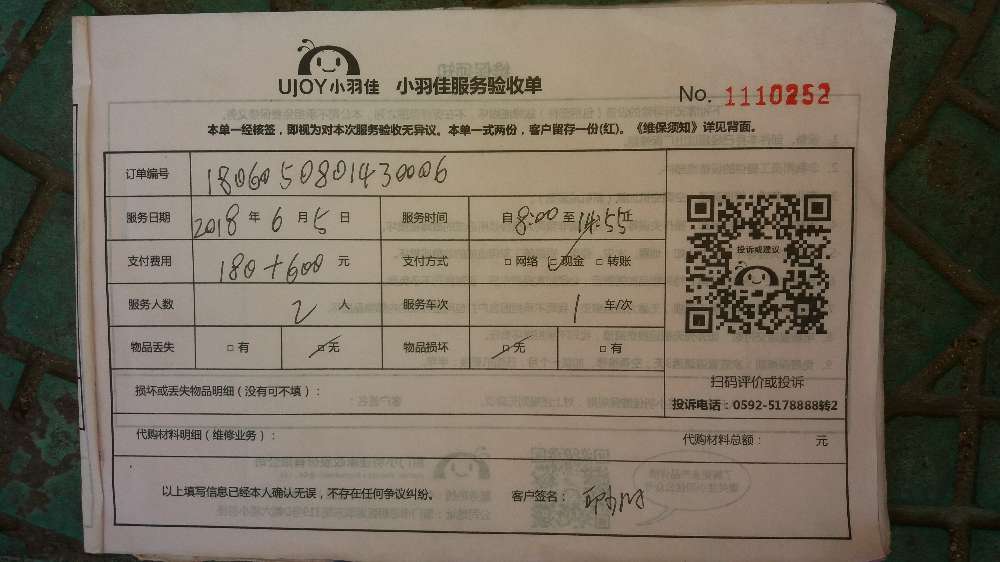 UJOY小羽佳 小羽佳服务验收单
No. 1110252
本单一经核签，即视为对本次服务验收无异议。本单一式两份，客户留存一份(红)。《维保须知》详见背面。
订单编号 180605080143 0006
服务日期 2018 年 6 月 5 日 服务时间 自 8:00 至 14:55 止
支付费用 180+600 元 支付方式 □ 网络 □ 现金 □ 转账
服务人数 2 人 服务车次 1 车/次
物品丢失 □ 有 □ 无 物品损坏 □ 无 □ 有
投诉或建议
扫码评价或投诉
投诉电话：0592-5178888转2
损坏或丢失物品明细（没有可不填）：
代购材料明细（维修业务）： 代购材料总额： 元
以上填写信息已经本人确认无误，不存在任何争议纠纷。 客户签名：